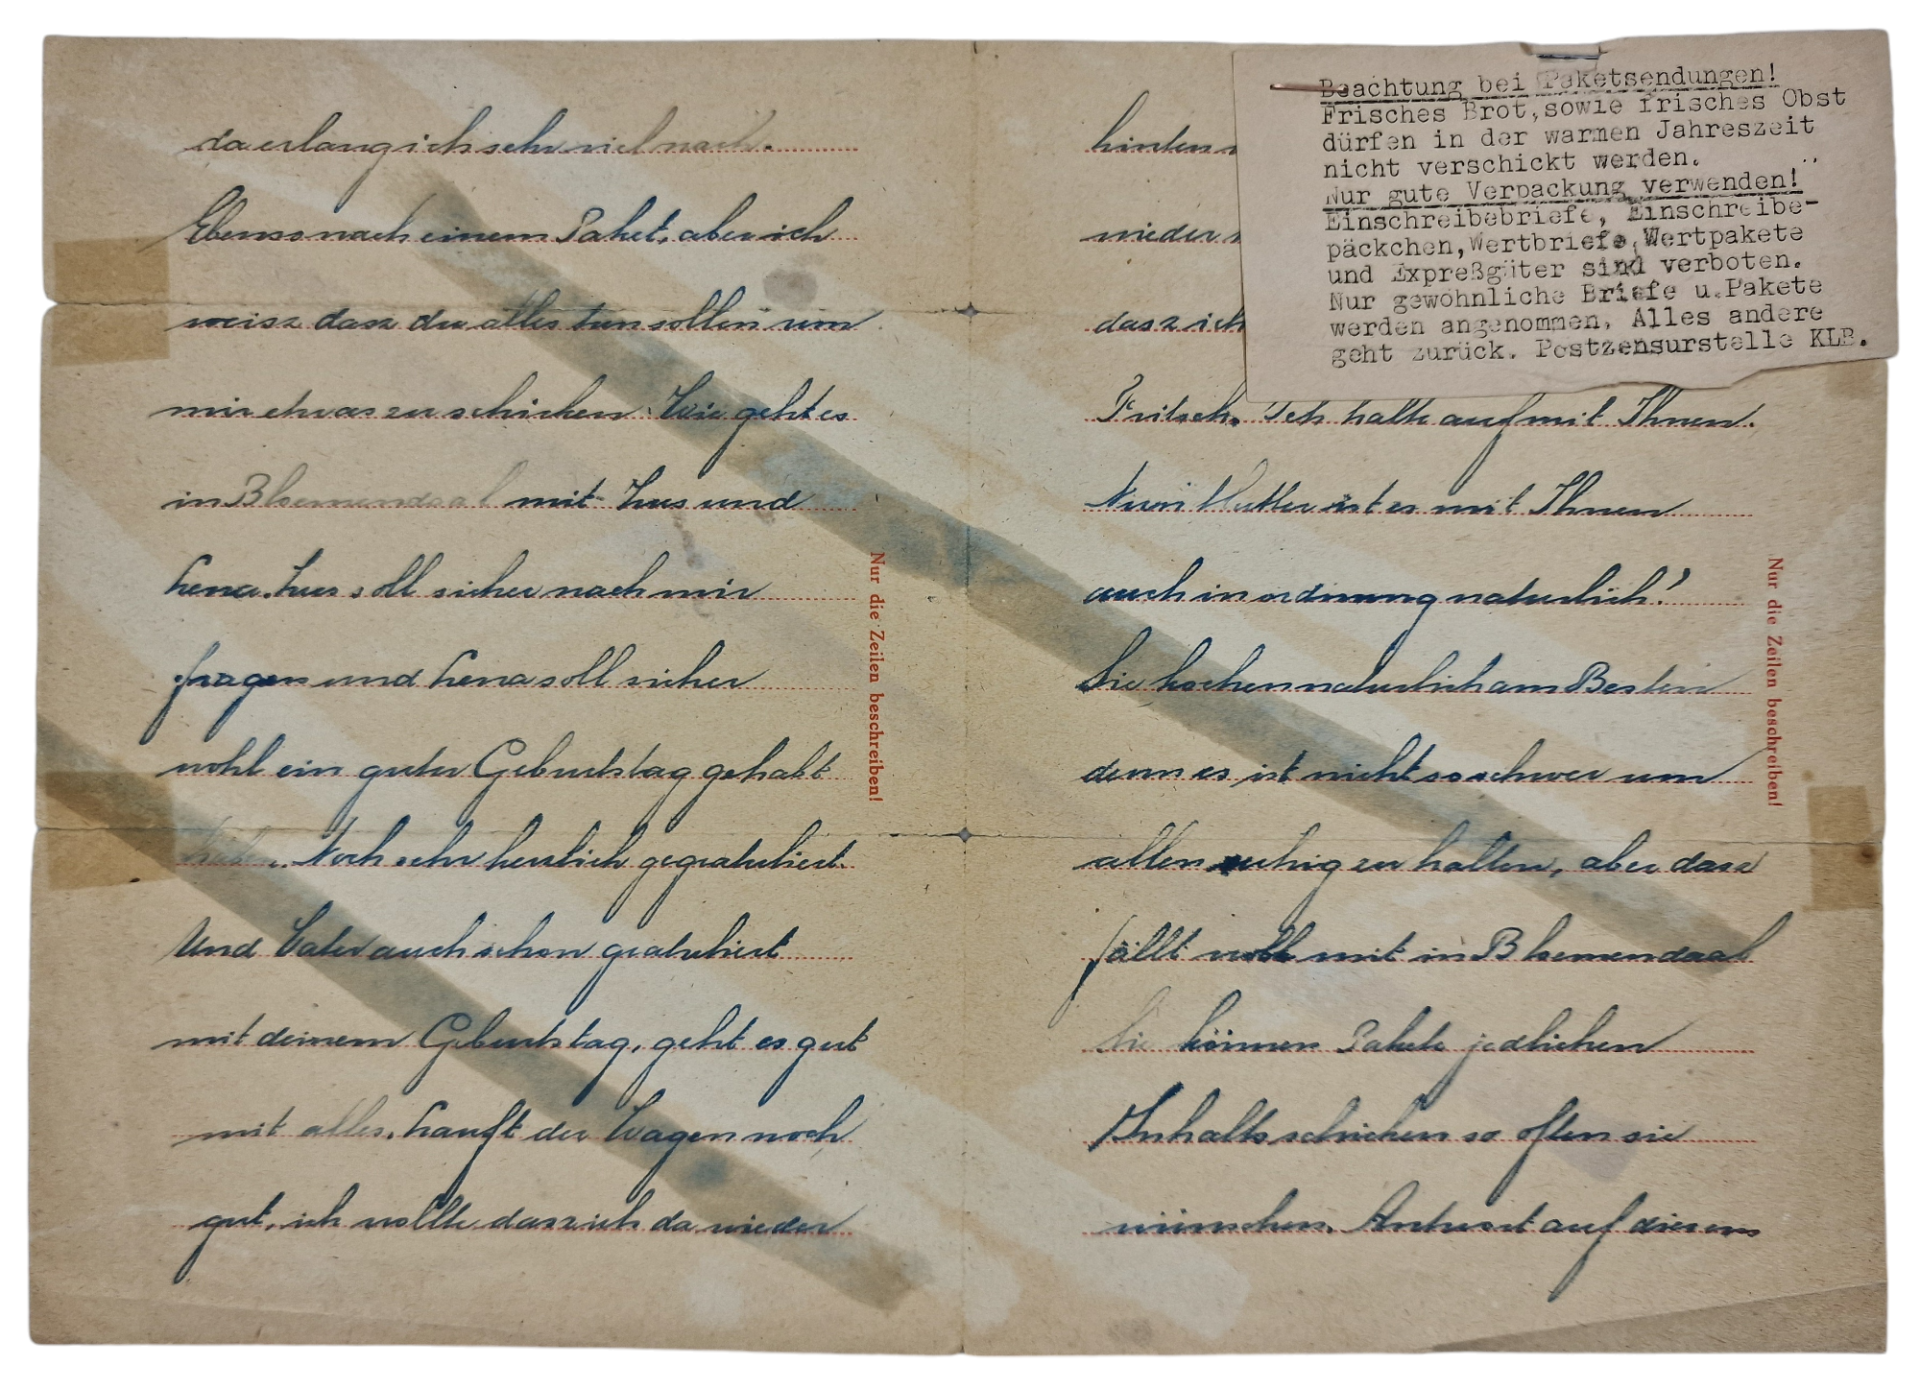 da erlang ich sehr viel nach.
Ebenso nach einem Paket, aber ich
weisz dasz du alles tun sollen um
mir etwas zu schicken. Wie geht es
in Bloemendaal mit Lus und
Lena. Lus soll sicher nach mir
fragen und Lena soll sicher
wohl ein guter Geburtstag gehabt
Noch sehr herzlich gegratuliert.
Und Vater auch schon gratuliert
mit deinem Geburtstag, geht es gut
mit alles. Lauft der Wagen noch
gut, ich wollte dasz ich da wieder
Nur die Zeilen beschreiben!
Beachtung bei Paketsendungen!
Frisches Brot, sowie frisches Obst
dürfen in der warmen Jahreszeit
nicht verschickt werden.
Nur gute Verpackung verwenden!
Einschreibebriefe, Einschreibe-
päckchen, Wertbriefe, Wertpakete
und Expreßgüter sind verboten.
Nur gewöhnliche Briefe u. Pakete
werden angenommen, Alles andere
geht zurück. Postzensurstelle KLB.
hinten
wieder
dasz ich
Fritsch. Ich halte auf mit Ihnen.
Nun Mutter ist es mit Ihnen
auch in ordnung naturlich!
Sie kochen naturlich am Besten
denn es ist nicht so schwer um
allen ruhig zu halten, aber dasz
fällt wohl mit in Bloemendaal
Sie können Pakete jedlichen
Inhalts schicken so often sie
wünschen. Antwort auf diesem
Nur die Zeilen beschreiben!